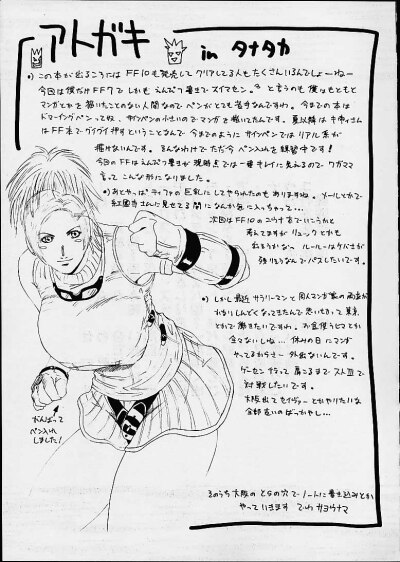 アトガキ in タナタカ
•) この本が出るころには FF10も発売して クリアしてる人も たくさんいるんでしょーねー
今回は僕だけFF7で しかも えんぴつ書きで スイマセン。 と言うのも 僕はもともと
マンガとかを 描いたことのない人間なので ペンがとても苦手なんですわ。今までの本は
サインペンの小さいので マンガを 描いてたんです。夏以降は
FF本で グイグイ押すということなんで 今までのように サインペンでは リアル系が
描けないんです。 そんなわけで ただ今 ペン入れを 練習中です!
今回のFFは えんぴつ書きが 現時点では一番 キレイに見えるので ワガママ
言って こんな形になりました。
•) あとやっぱ ティファの 巨乳に してやられたのも ありますね。 メールとかで
さんに 見せてる間に なんか気に入っちゃって…
次回は FF10の ユウナあたりで いこうかと
考えてますが リュックとかも
ルールーは ケバさが
強そうなんで パスしたいです。
•) しかし最近 サラリーマンと 同人マンガ家の 両立が
東京
とかで 働きたいですわ。 お金使うヒマとか
全くないしね… 休みの日に マンガ
やってるからさー 外出ないんです。
ゲーセン 行って 肩こるまで ストIIIで
対戦したいです。
大阪出て セイヴァーとか やりたいな
全部古いの ばっかやし…
がんばって
ペン入れ
しました!
そのうち 大阪の とらの穴で ノートに 書き込みとか
やっていきます では サヨウナラ